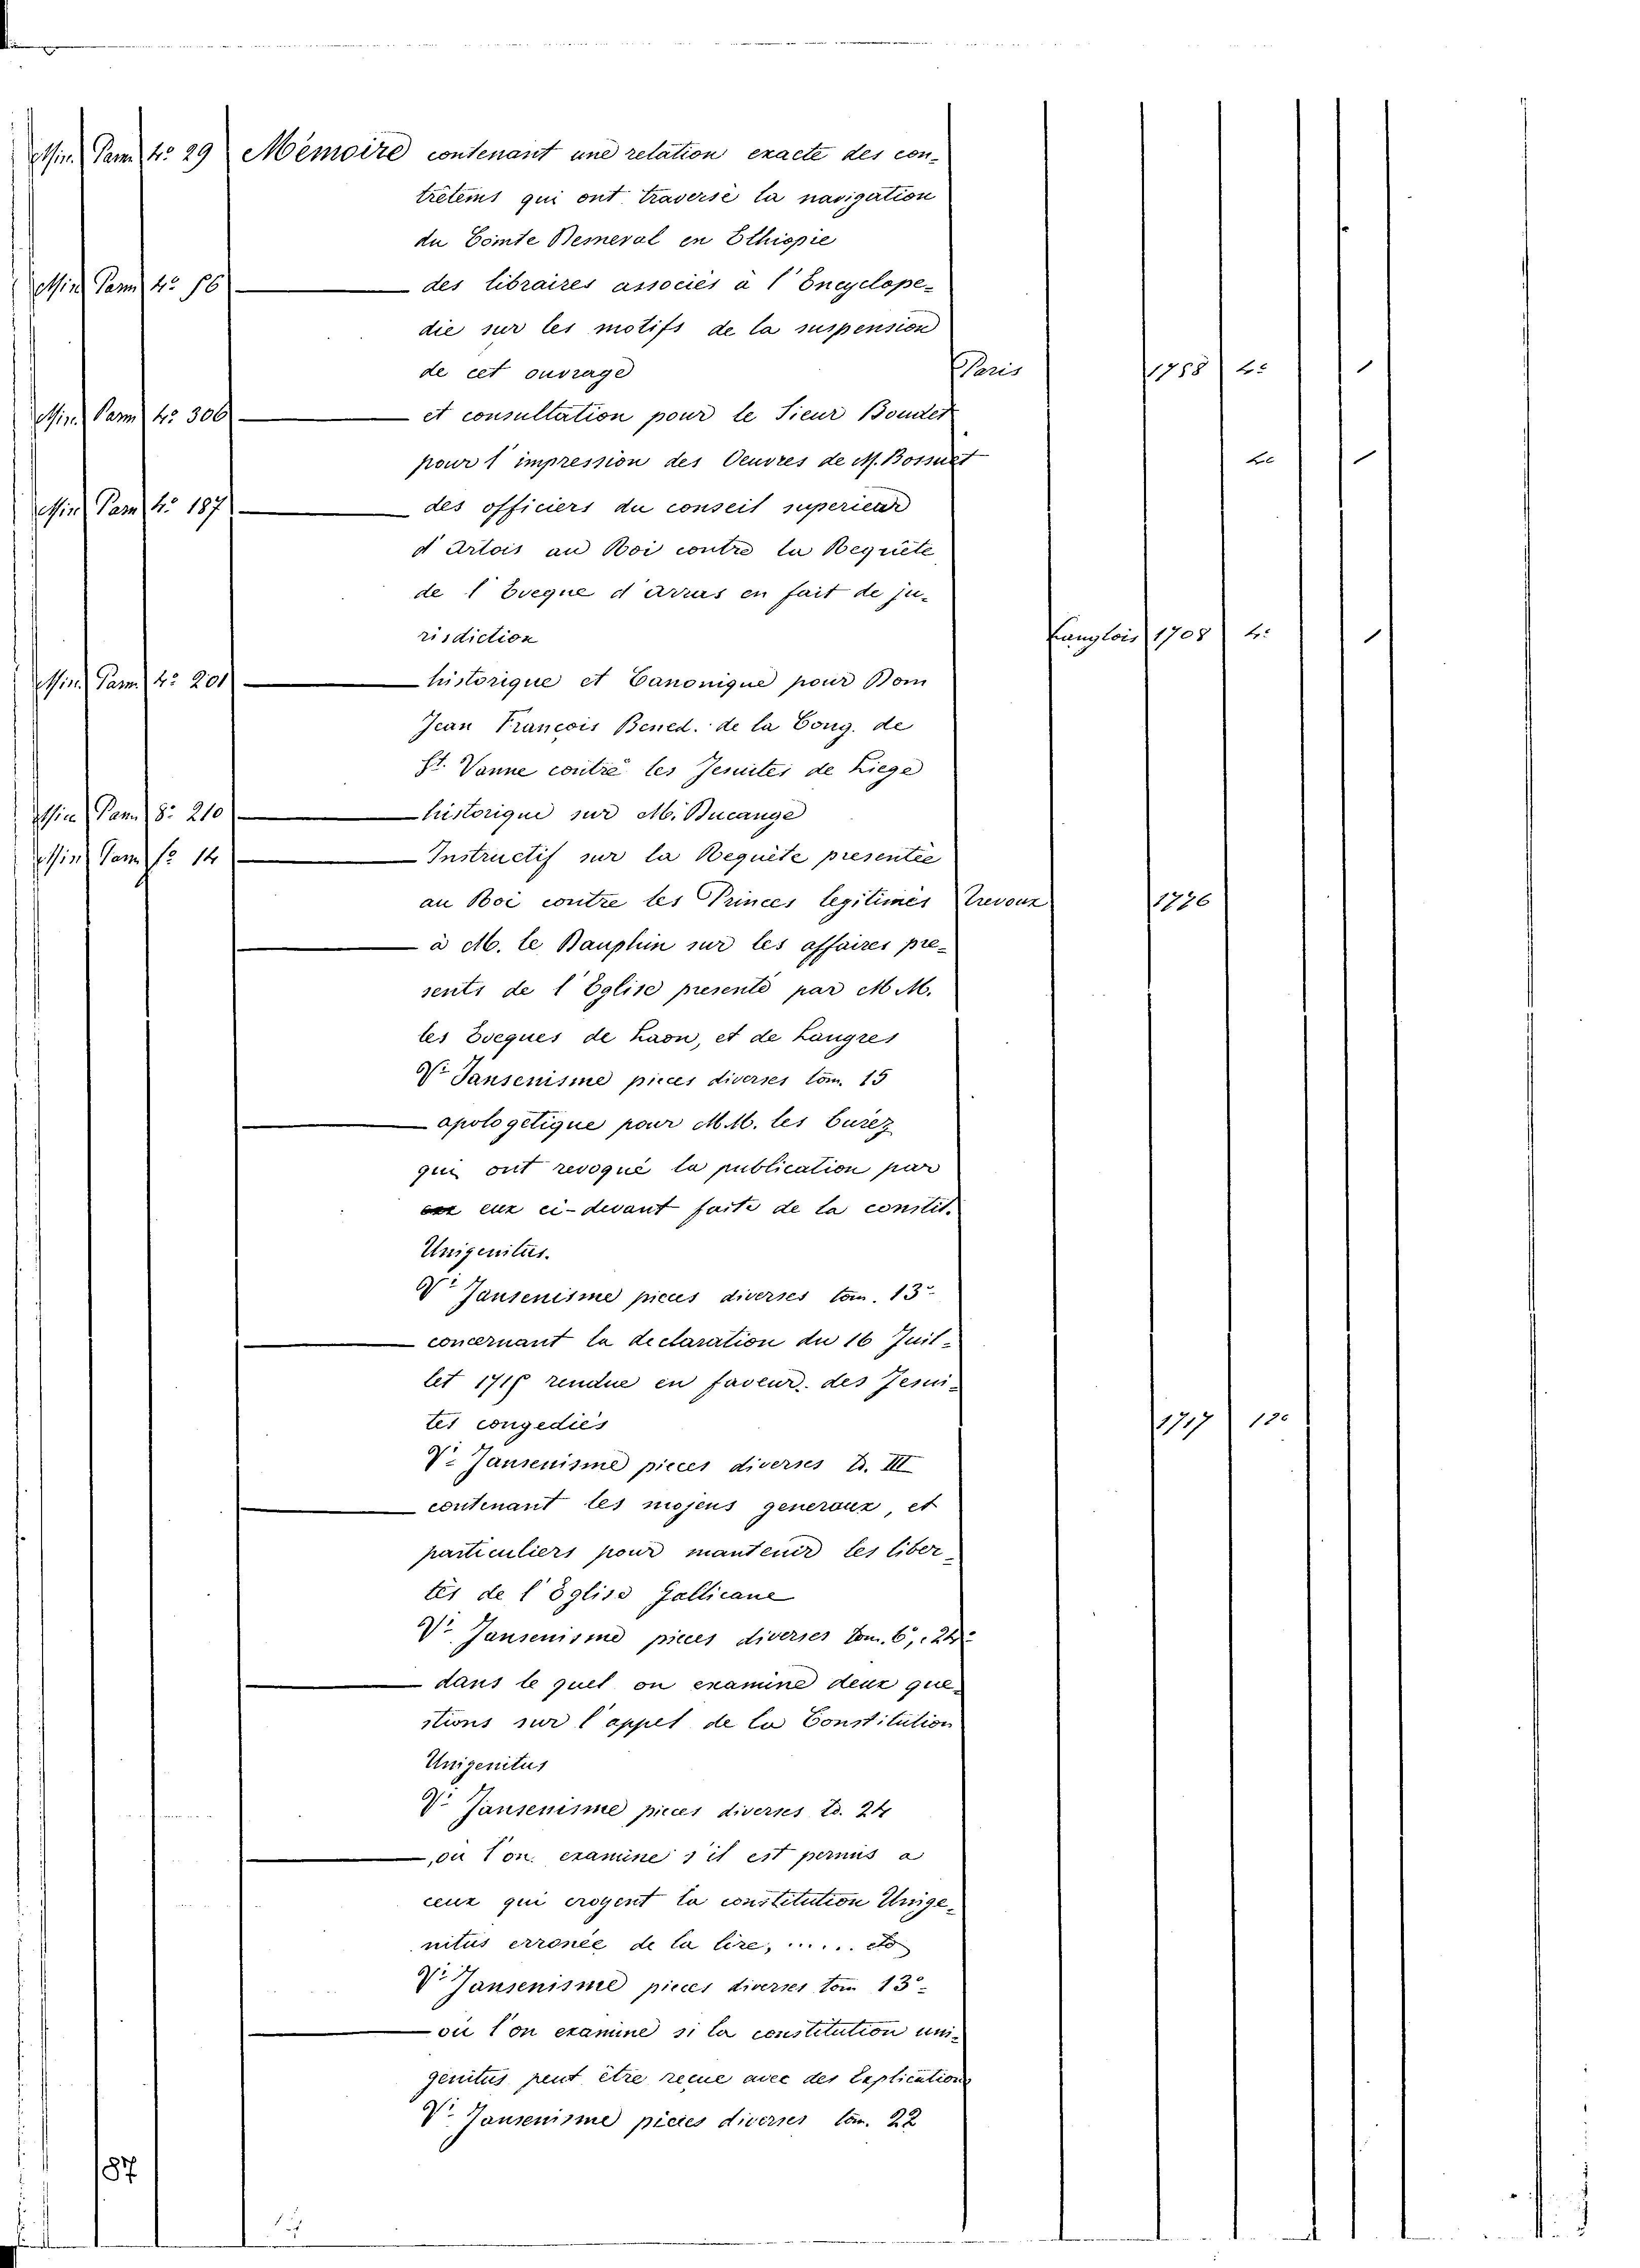 Min. Pam. 4o. 29 Mémoire contenant une relation exacte des con-
tretems qui ont traversé la navigation
du Comte Bemeval en Ethiopie
Min. Pam. 4o. 16 des libraires associés à l'Encyclope-
die sur les motifs de la suspension
de cet ouvrage Paris 1758 4o. 1
Min. Pam. 4o. 306 et consultation pour le Sieur Boudet
pour l'impression des Oeuvres de M. Bossuet 4o 1
Min. Pam. 4o. 187 des officiers du conseil superieur
d'Artois au Roi contre la Requête
de l'Eveque d'Arras en fait de ju-
risdiction Langlois 1708 4o. 1
Min. Pam. 4o. 201 historique et Canonique pour Dom
Jean François Bened. de la Cong. de
St. Vanne contre les Jesuites de Liege
Min. Pam. 8o. 210 historique sur M. Ducange
Min. Pam. fo. 14 Instructif sur la Requête presentée
au Roi contre les Princes legitimés Trevoux 1726
à M. le Dauphin sur les affaires pre-
sents de l'Eglise presenté par M M.
les Eveques de Laon, et de Langres
Vi. Jansenisme pieces diverses tom. 15
apologetique pour M.M. les Curez
qui ont revoqué la publication par
eux ci-devant faite de la constit.
Unigenitus.
Vi. Jansenisme pieces diverses tom. 13o.
concernant la declaration du 16 Juil-
let 171 rendue en faveur des Jesui-
tes congediés 1717 12o
Vi. Jansenisme pieces diverses To. III
contenant les mojens generaux, et
particuliers pour mantenir les liber-
tés de l'Eglise Gallicane
Vi. Jansenisme pieces diverses tom. 6o, 24o
dans le quel on examine deux que-
stions sur l'appel de la Constitution
Unigenitus
Vi. Jansenisme pieces diverses to. 24
ou l'on examine s'il est permis a
ceux qui croyent la constitution Unige-
nitus erronée de la lire, ......
Vi. Jansenisme pieces diverses tom 13o.
où l'on examine si la constitution uni-
genitus peut être reçue avec des Explications
Vi. Jansenisme pieces diverses tom. 22
187